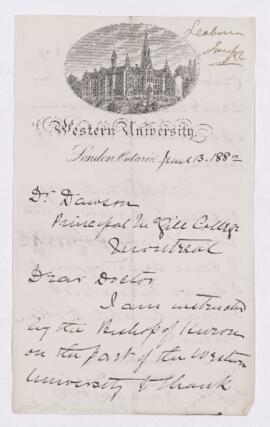 Western University,
London, Ontario June 13. 1882
Dr Dawson
Principal McGill College
Montreal
Dear Doctor
I am instructed
by the Bishop of Huron
on the part of the Western
University to thank